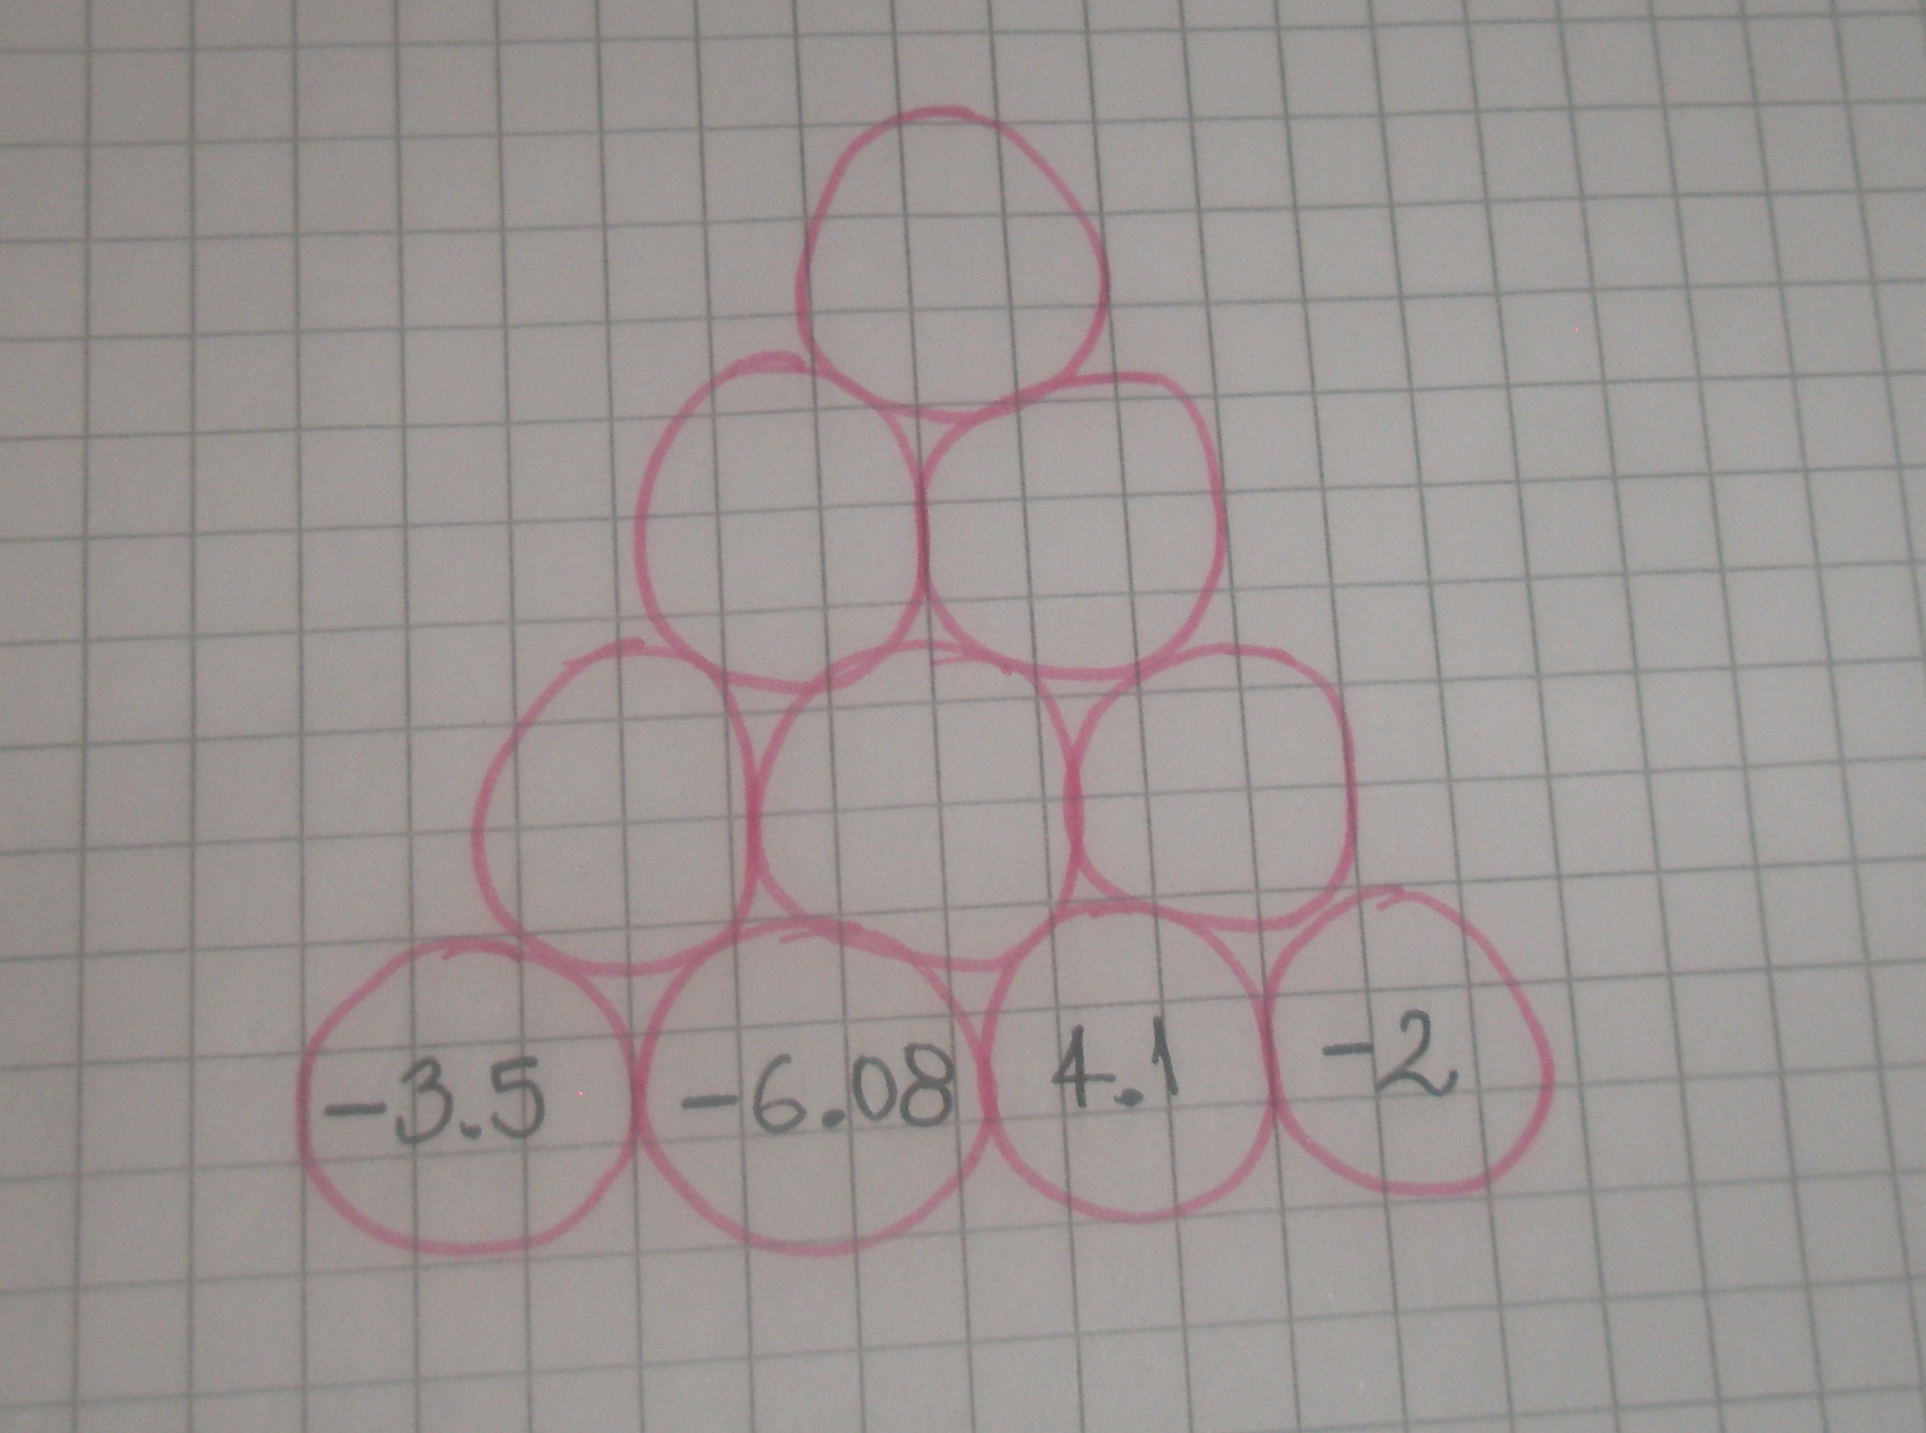 -3.5 -6.08 4.1 -2